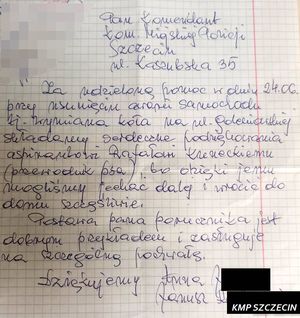 Pan Komendant
Kom. Miejskiej Policji
Szczecin
ul. Kaszubska 35
Za udzieloną pomoc w dniu 24.06.
przy usunięciu awarii samochodu
tj. wymiana koła na ul. Goleniowskiej
składamy serdeczne podziękowania
aspirantowi Rafałowi Kreneckiemu
(przewodnik psa), bo dzięki jemu
mogliśmy jechać dalej i wrócić do
domu szczęśliwie.
Postawa pana porucznika jest
dobrym przykładem i zasługuje
na szczególną pochwałę.
Dziękujemy Anna
Janusz
KMP SZCZECIN